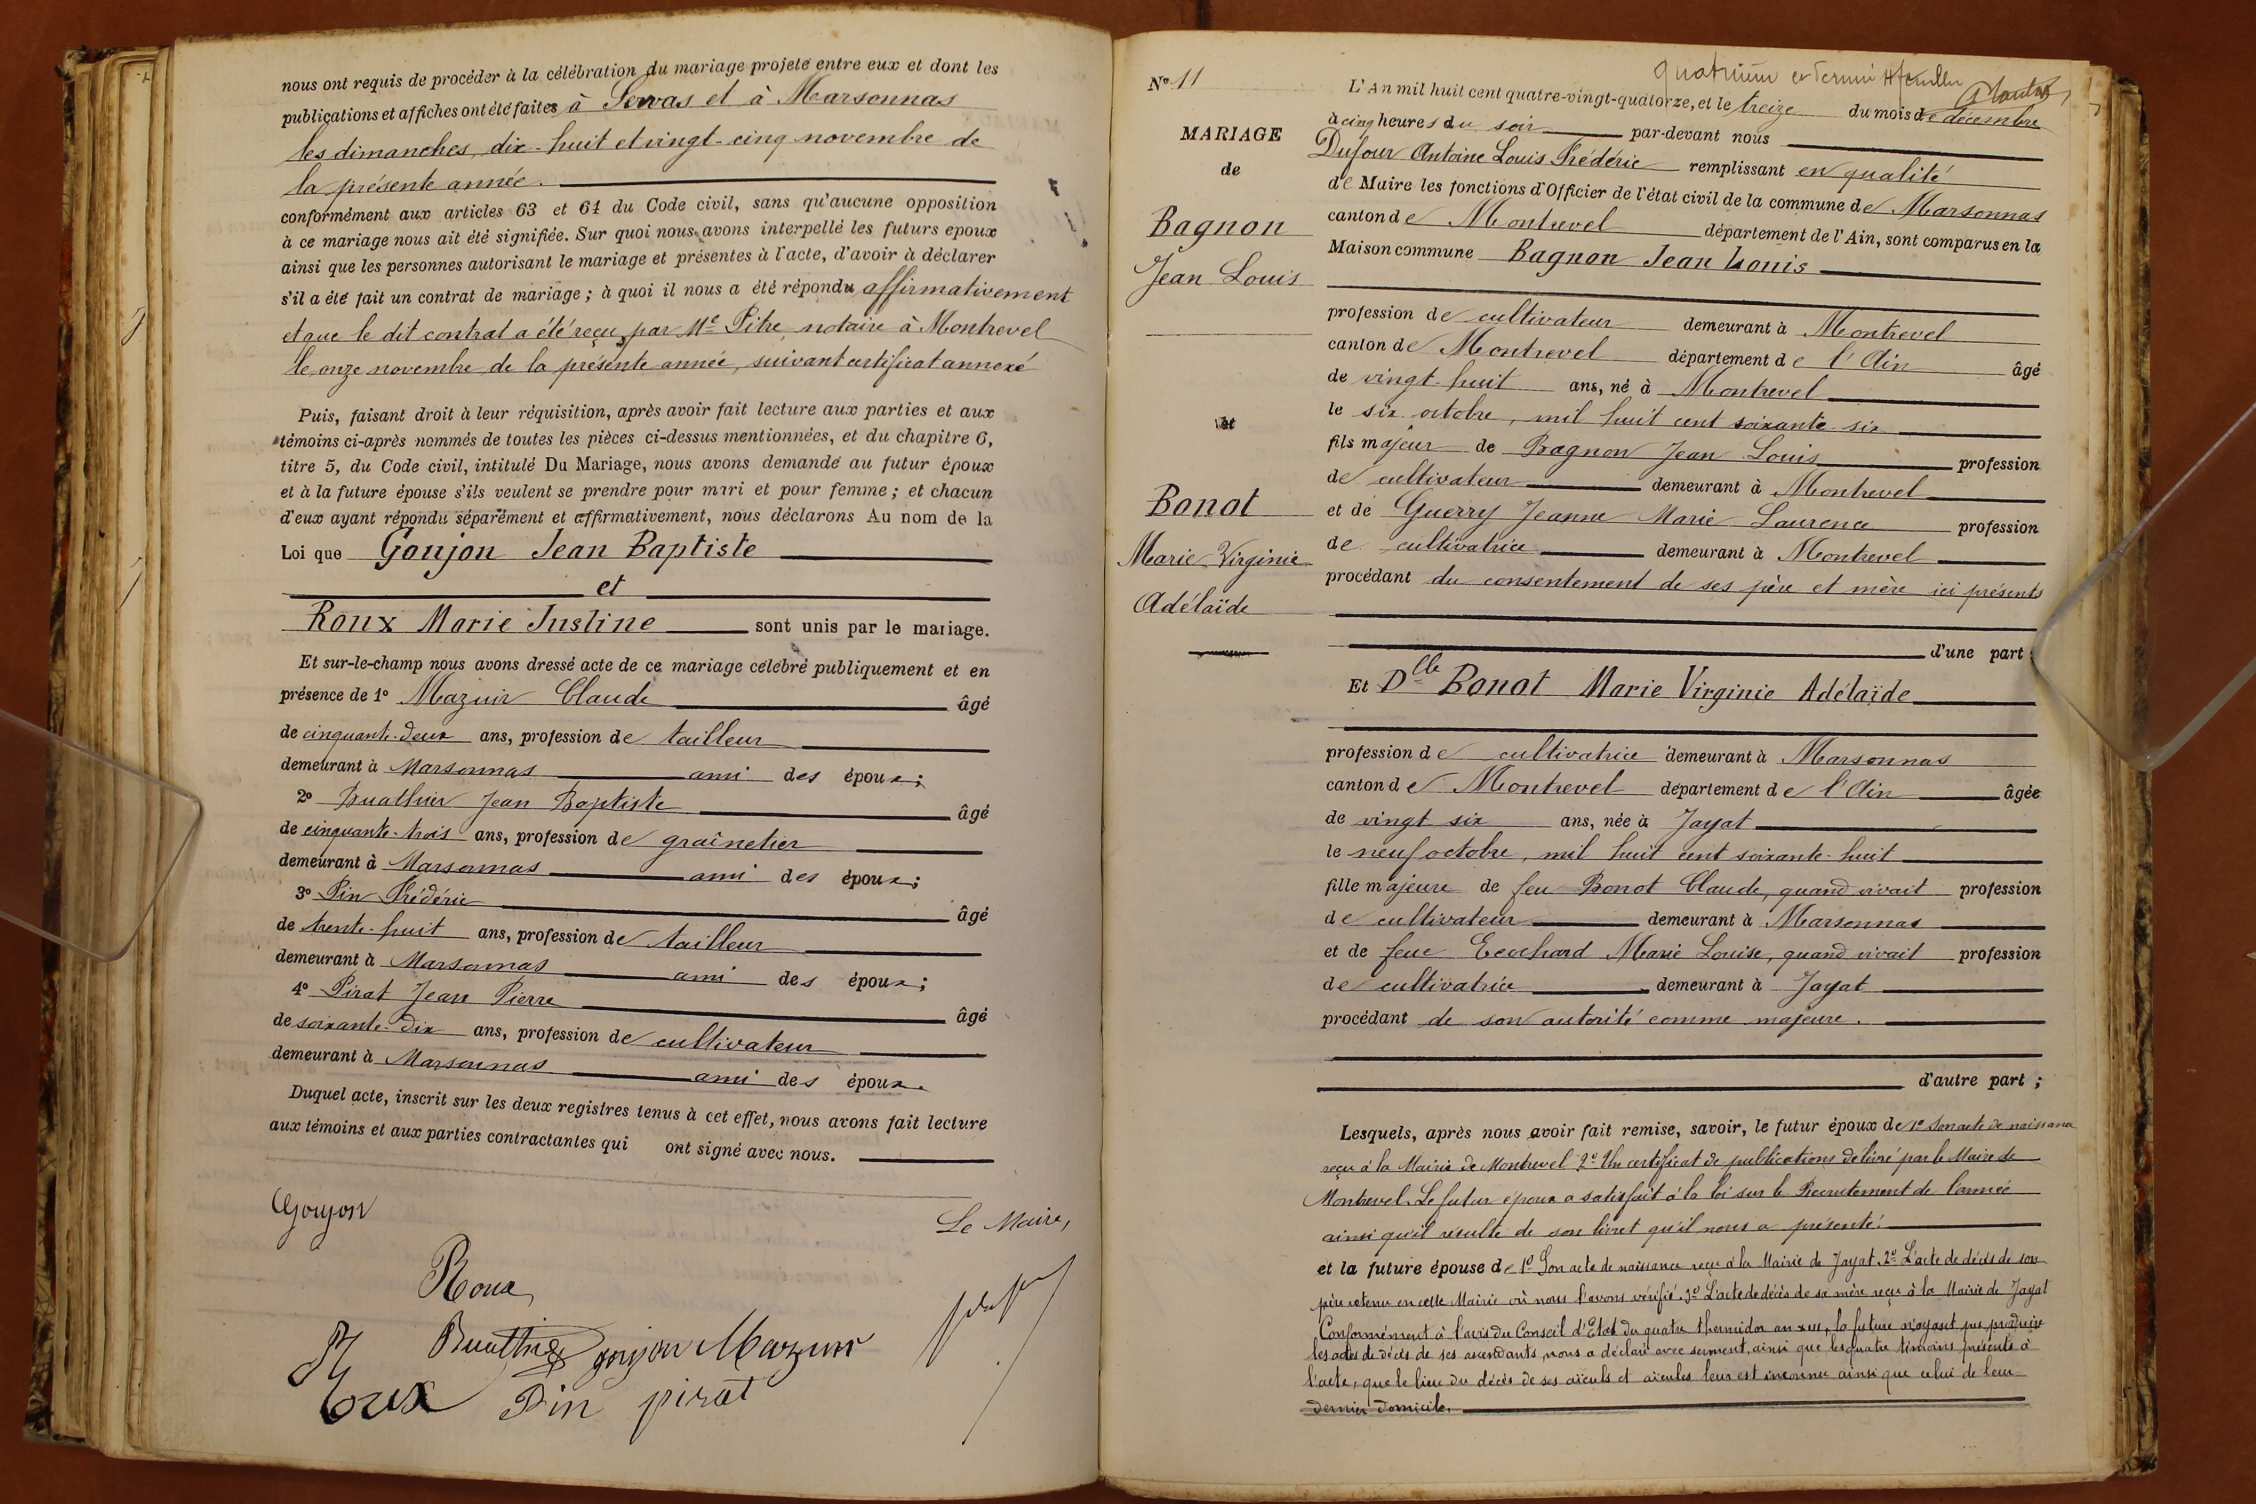 nous ont requis de procéder à la célébration du mariage projeté entre eux et dont les
publications et affiches ont été faites à Servas et à Marsonnas
les dimanches dix-huit et vingt-cinq novembre de
la présente année.
conformément aux articles 63 et 64 du Code civil, sans qu'aucune opposition
à ce mariage nous ait été signifiée. Sur quoi nous avons interpellé les futurs epoux
ainsi que les personnes autorisant le mariage et présentes à l'acte, d'avoir à déclarer
s'il a été fait un contrat de mariage; à quoi il nous a été répondu affirmativement
et que le dit contrat a été reçu par Me Pitre notaire à Montrevel
le onze novembre de la présente année, suivant certificat annexé
Puis, faisant droit à leur réquisition, après avoir fait lecture aux parties et aux
témoins ci-après nommés de toutes les pièces ci-dessus mentionnées, et du chapitre 6,
titre 5, du Code civil, intitulé Du Mariage, nous avons demandé au futur époux
et à la future épouse s'ils veulent se prendre pour mari et pour femme; et chacun
d'eux ayant répondu séparément et affirmativement, nous déclarons Au nom de la
Loi que Goujon Jean Baptiste
et
Roux Marie Justine sont unis par le mariage.
Et sur-le-champ nous avons dressé acte de ce mariage célébré publiquement et en
présence de 1° Mazuir Claude âgé
de cinquante-deux ans, profession de tailleur
demeurant à Marsonnas ami des époux;
2° Buathier Jean Baptiste âgé
de cinquante-trois ans, profession de graînetier
demeurant à Marsonnas ami des époux;
3° Pin Frédéric âgé
de trente-huit ans, profession de tailleur
demeurant à Marsonnas ami des époux;
4° Pirat Jean Pierre âgé
de soixante-dix ans, profession de cultivateur
demeurant à Marsonnas ami des époux.
Duquel acte, inscrit sur les deux registres tenus à cet effet, nous avons fait lecture
aux témoins et aux parties contractantes qui ont signé avec nous.
Goujon
Le Maire,
Roux
Buathier goujon Mazuir
Roux Pin pirat
No 11
MARIAGE
de
Bagnon
Jean Louis
et
Bonot
Marie Virginie
Adélaïde
quatrième et dernier
L'An mil huit cent quatre-vingt-quatorze, et le treize du mois de décembre
à cinq heures du soir par-devant nous
Dufour Antoine Louis Frédéric remplissant en qualité
de Maire les fonctions d'Officier de l'état civil de la commune de Marsonnas
canton de Montrevel département de l'Ain, sont comparus en la
Maison commune Bagnon Jean Louis
profession de cultivateur demeurant à Montrevel
canton de Montrevel département de l'Ain âgé
de vingt-huit ans, né à Montrevel
le six octobre, mil huit cent soixante six
fils majeur de Bagnon Jean Louis profession
de cultivateur demeurant à Montrevel
et de Guerry Jeanne Marie Laurence profession
de cultivatrice demeurant à Montrevel
procédant du consentement de ses père et mère ici présents
d'une part;
Et Dlle Bonot Marie Virginie Adélaïde
profession de cultivatrice demeurant à Marsonnas
canton de Montrevel département de l'Ain âgée
de vingt six ans, née à Jayat
le neuf octobre, mil huit cent soixante-huit
fille majeure de feu Bonot Claude, quand vivait profession
de cultivateur demeurant à Marsonnas
et de feue Ecochard Marie Louise, quand vivait profession
de cultivatrice demeurant à Jayat
procédant de son autorité comme majeure.
d'autre part;
Lesquels, après nous avoir fait remise, savoir, le futur époux de 1° Son acte de naissance
reçu à la Mairie de Montrevel 2° Un certificat de publications délivré par le Maire de
Montrevel. Le futur époux a satisfait à la loi sur le Recrutement de l'armée
ainsi qu'il résulte de son livret qu'il nous a présenté.
et la future épouse de 1° Son acte de naissance reçu à la Mairie de Jayat. 2° L'acte de décès de son
père retenu en cette Mairie où nous l'avons vérifié. 3° L'acte de décès de sa mère reçu à la Mairie de Jayat
Conformément à l'avis du Conseil d'Etat du quatre thermidor an XIII, la future n'ayant pu produire
les actes de décès de ses ascendants, nous a déclaré avec serment, ainsi que les quatre témoins présents à
l'acte, que le lieu du décès de ses aïeuls et aïeules leur est inconnu ainsi que celui de leur
dernier domicile.